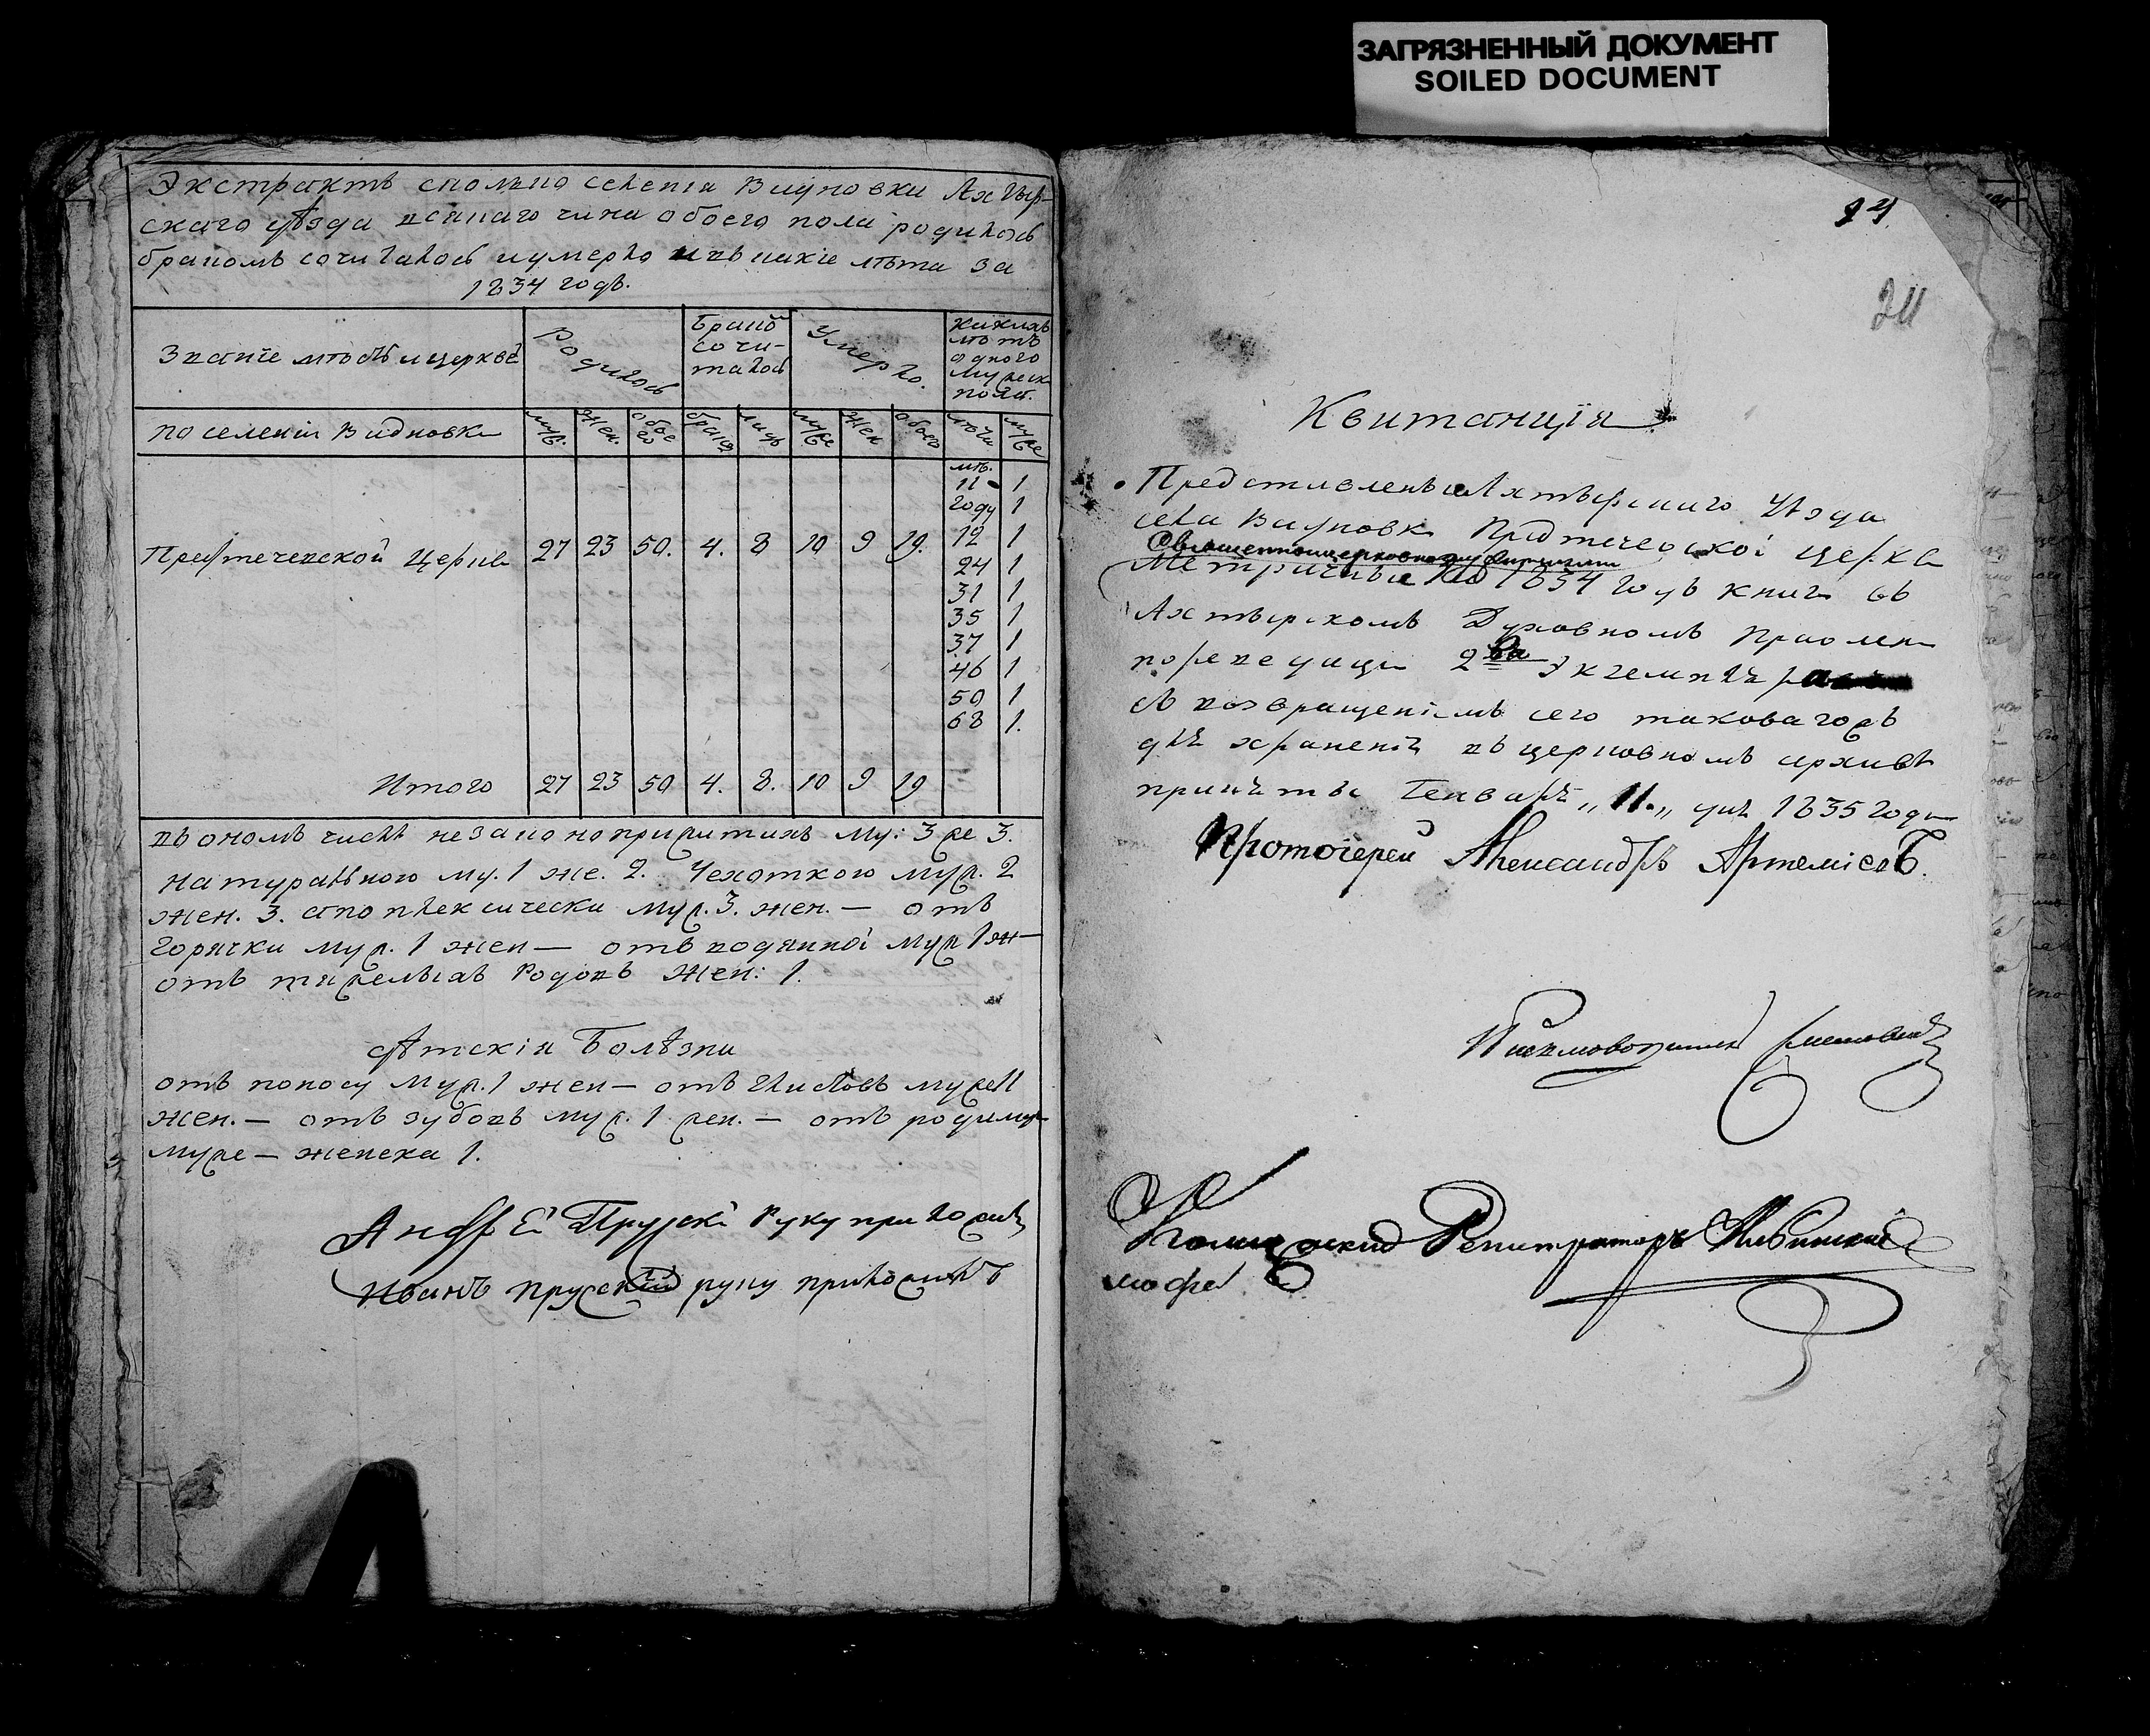 ЗАГРЯЗНЕННЫЙ ДОКУМЕНТ
SOILED DOCUMENT
Экстрактъ сколько селенiя Видновки Ахтыр-
скаго уѣзда всякаго чина обоего пола родилось
бракомъ сочиталось и умерло и въ какiе лѣта за
1834 годъ.
Званiе мѣстъ и церквей
Родилось
Бракô
сочи-
талось
Умерло.
какихъ
лѣтъ
одного
мужеск
полу.
по селенiи Видновки
муж.
жен.
обое
его
брако
лицъ
муже
жен
обоего
лѣты
муже
лѣ.
11 - 1
году 1
12 1
Предтеченской Церкви 27 23 50. 4. 8 10 9 19.
24 1
31 1
35 1
37 1
46 1
50 1
68 1.
Итого 27 23 50 4. 8. 10 9 19
въ ономъ числѣ незаконоприжитихъ му: 3 же 3.
натурального му. 1 же. 2. Чехоткою муж. 2
жен. 3. апоплексически муж. 3. жен. — отъ
горячки муж. 1 жен — отъ водянной муж 1 ж—
отъ тяжелыхъ Родовъ Жен: 1.
дѣтскiя Болѣзни
отъ поносу муж. 1 жен — отъ глистовъ муже 1
жен. — отъ зубовъ муж. 1 жен. — отъ
муже — женска 1.
Андрей Прускi Руку приложилъ
Иванъ прускiй руку приложилъ
24
24
Квитанцiя
Представленые Ахтырскаго Уѣзда
села Видновки Предтеческой церкви
Священноцерковнослужителями
Метричные за 1834 годъ книги въ
Ахтырскомъ Духовномъ Правленiи
2ва Экземпляра
съ возвращенiемъ сего таковагожъ
для храненiя въ церковномъ архивѣ
приняты Генваря „11„ дня 1835 года
Протоiерей Александръ Артемiевъ.
Писмоводитель
Колежский Регистраторъ